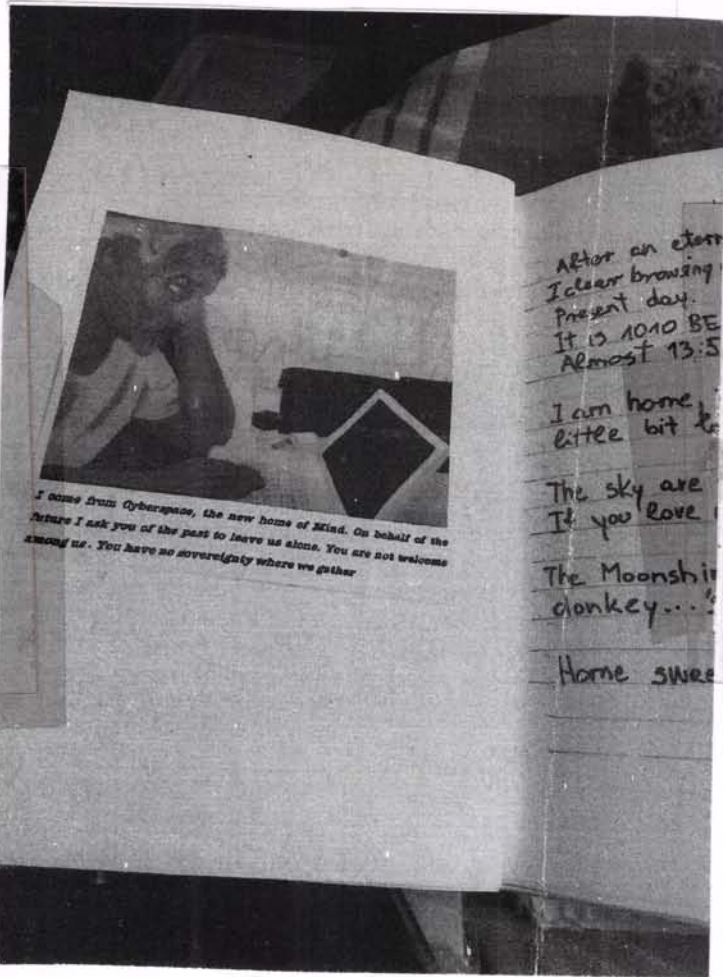 I come from Cyberspace, the new home of Mind. On behalf of the
future I ask you of the past to leave us alone. You are not welcome
among us. You have no sovereignty where we gather
After an etern
I clear browsing
Present day.
It is 1010 BE
Almost 13:5
I am home,
little bit
The sky are
If you love
The Moonshin
donkey...
Home swee